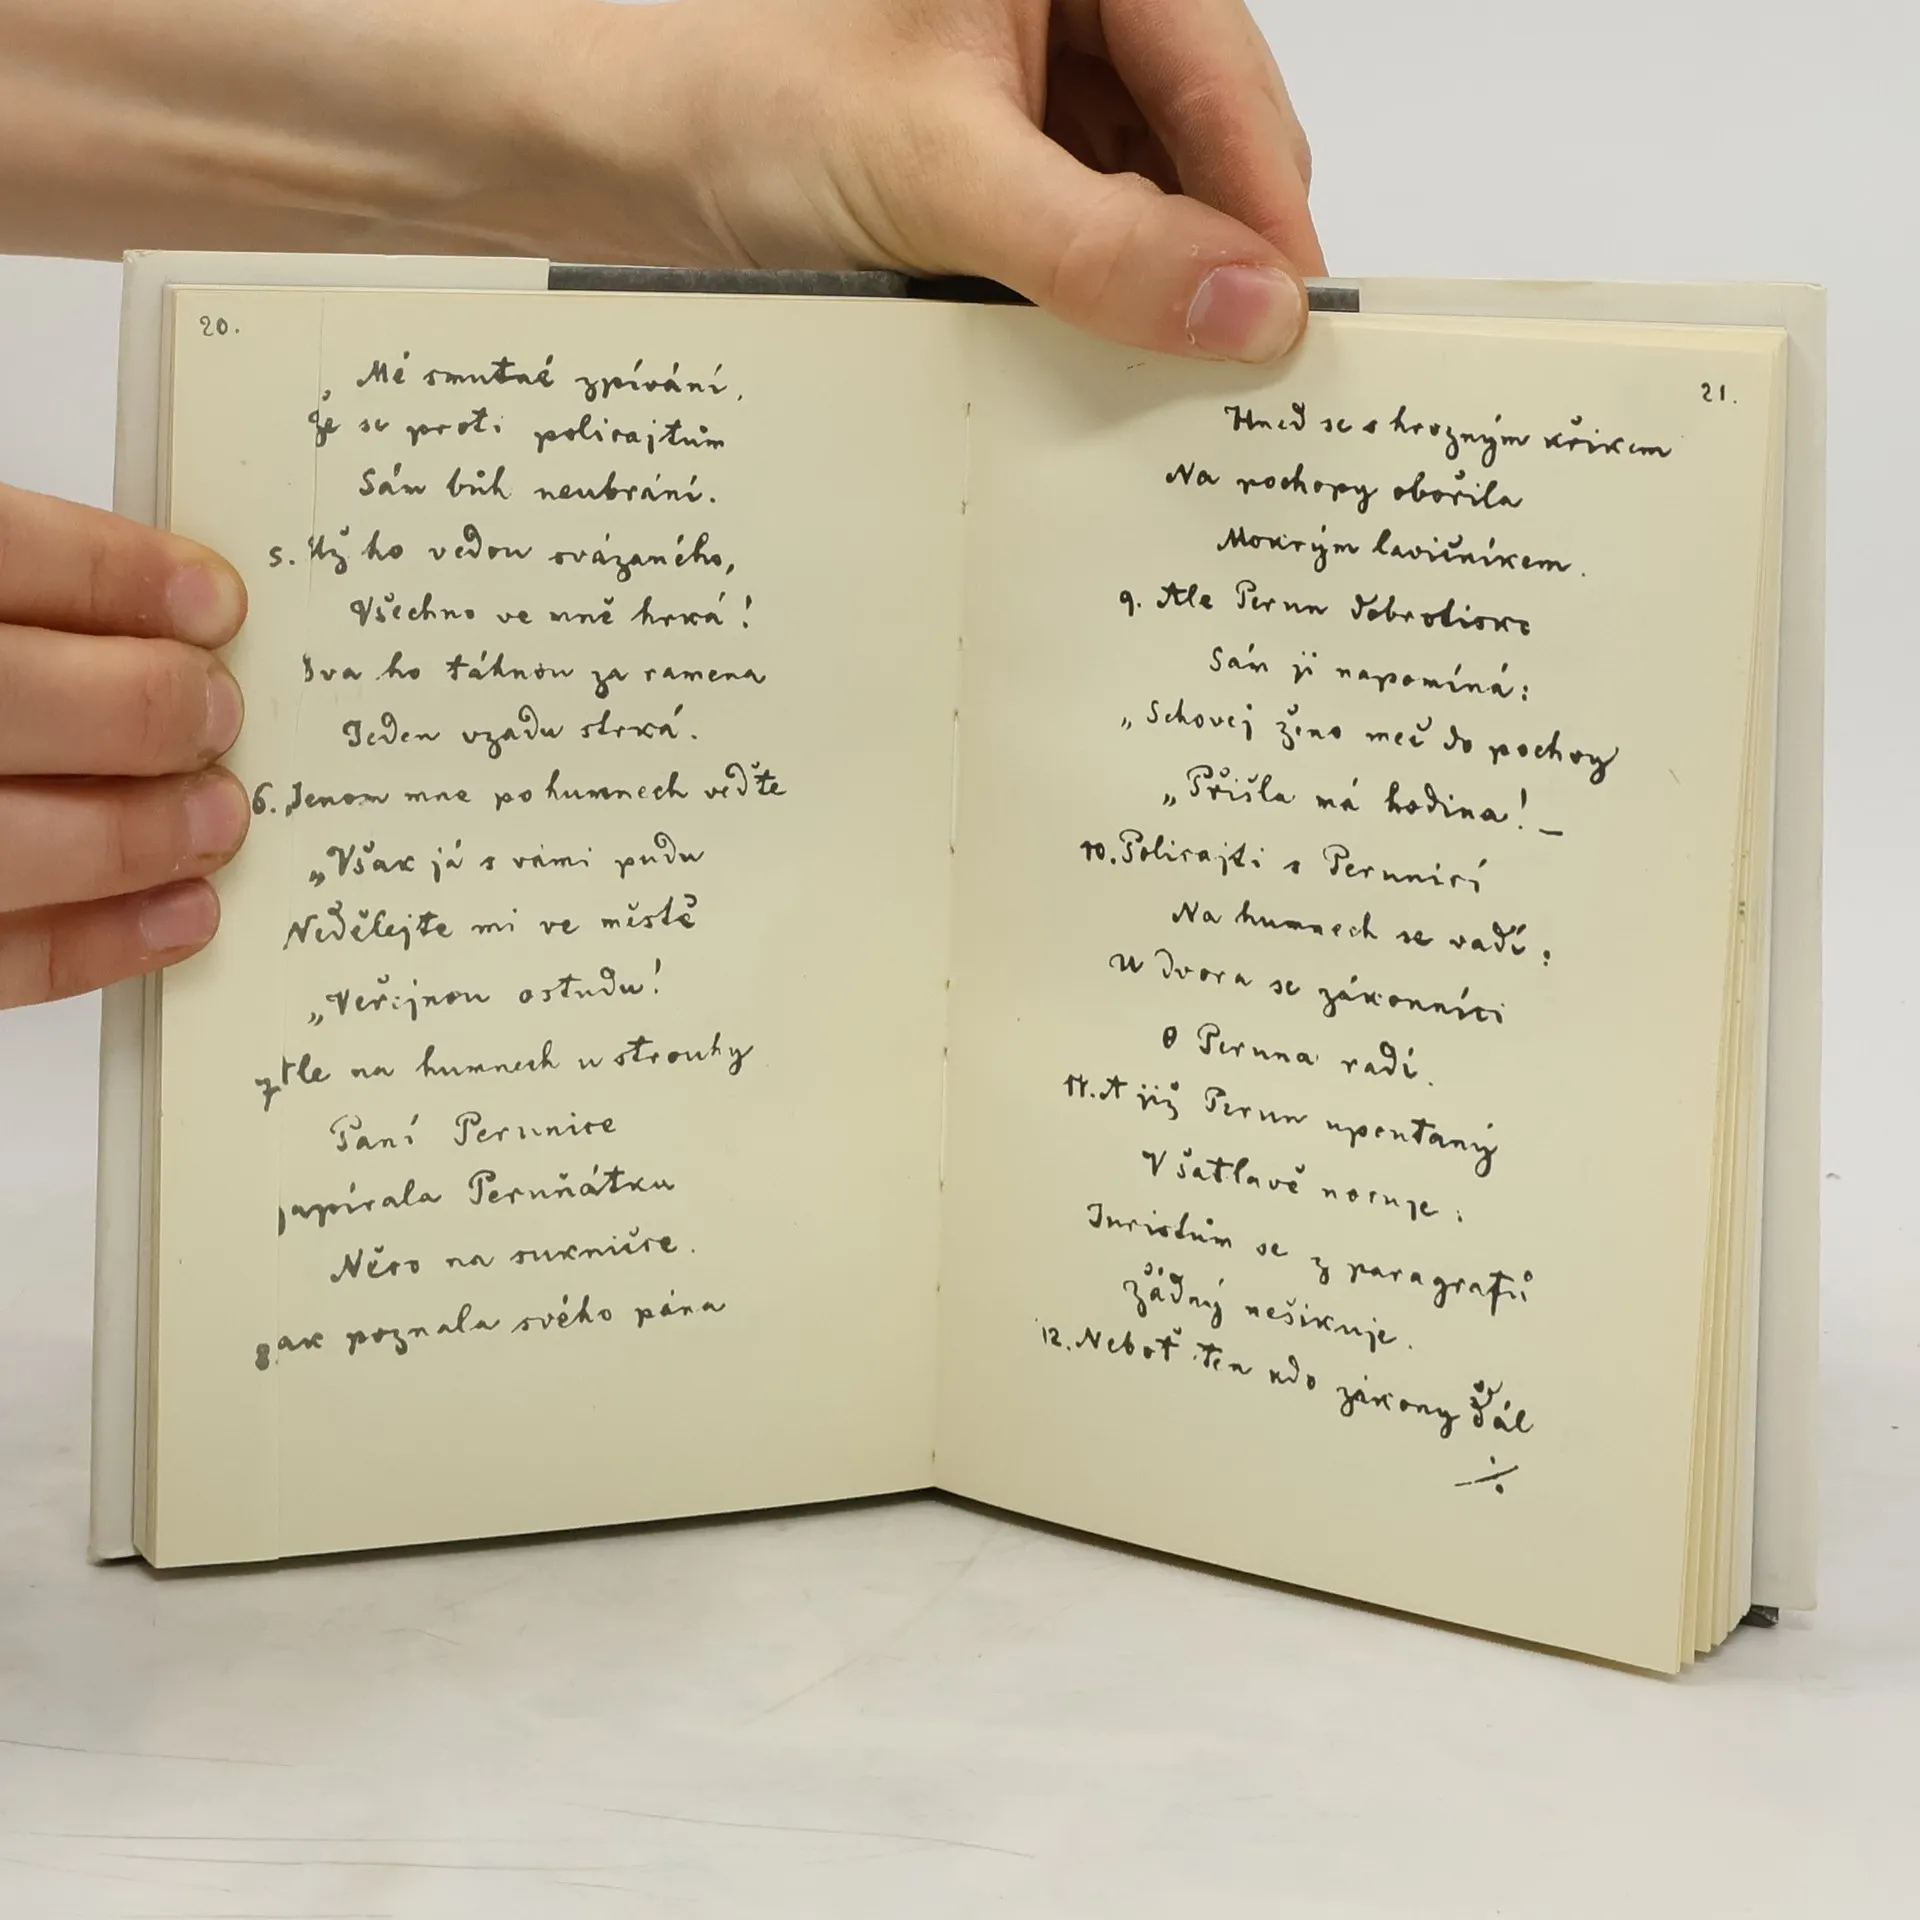 20.
Mé smutné zpívání,
Že se proti policajtům
Sám bůh neubrání.
5. Už ho vedou svázaného,
Všechno ve mně hrká!
Dva ho táhnou za ramena
Jeden vzadu strká.
6. „Jenom mne po humnech veďte
„Však já s vámi pudu
Nedělejte mi ve městě
„Veřejnou ostudu!
7. Ale na humnech u strouhy
Paní Perunice
zapírala Peruňátku
Něco na sukničce.
8. Jak poznala svého pána
21.
Hned se s hrozným křikem
Na pochopy obořila
Mokrým lavičníkem.
9. Ale Perun dobrotisko
Sám ji napomíná:
„Schovej ženo meč do pochvy
„Přišla má hodina! —
10. Policajti s Perunicí
Na humnech se vadí:
U dvora se zákonníci
O Peruna radí.
11. A již Perun upoutaný
V šatlavě nocuje:
Juristům se z paragrafů
Žádný nešikuje.
12. Neboť ten kdo zákony dál
./.